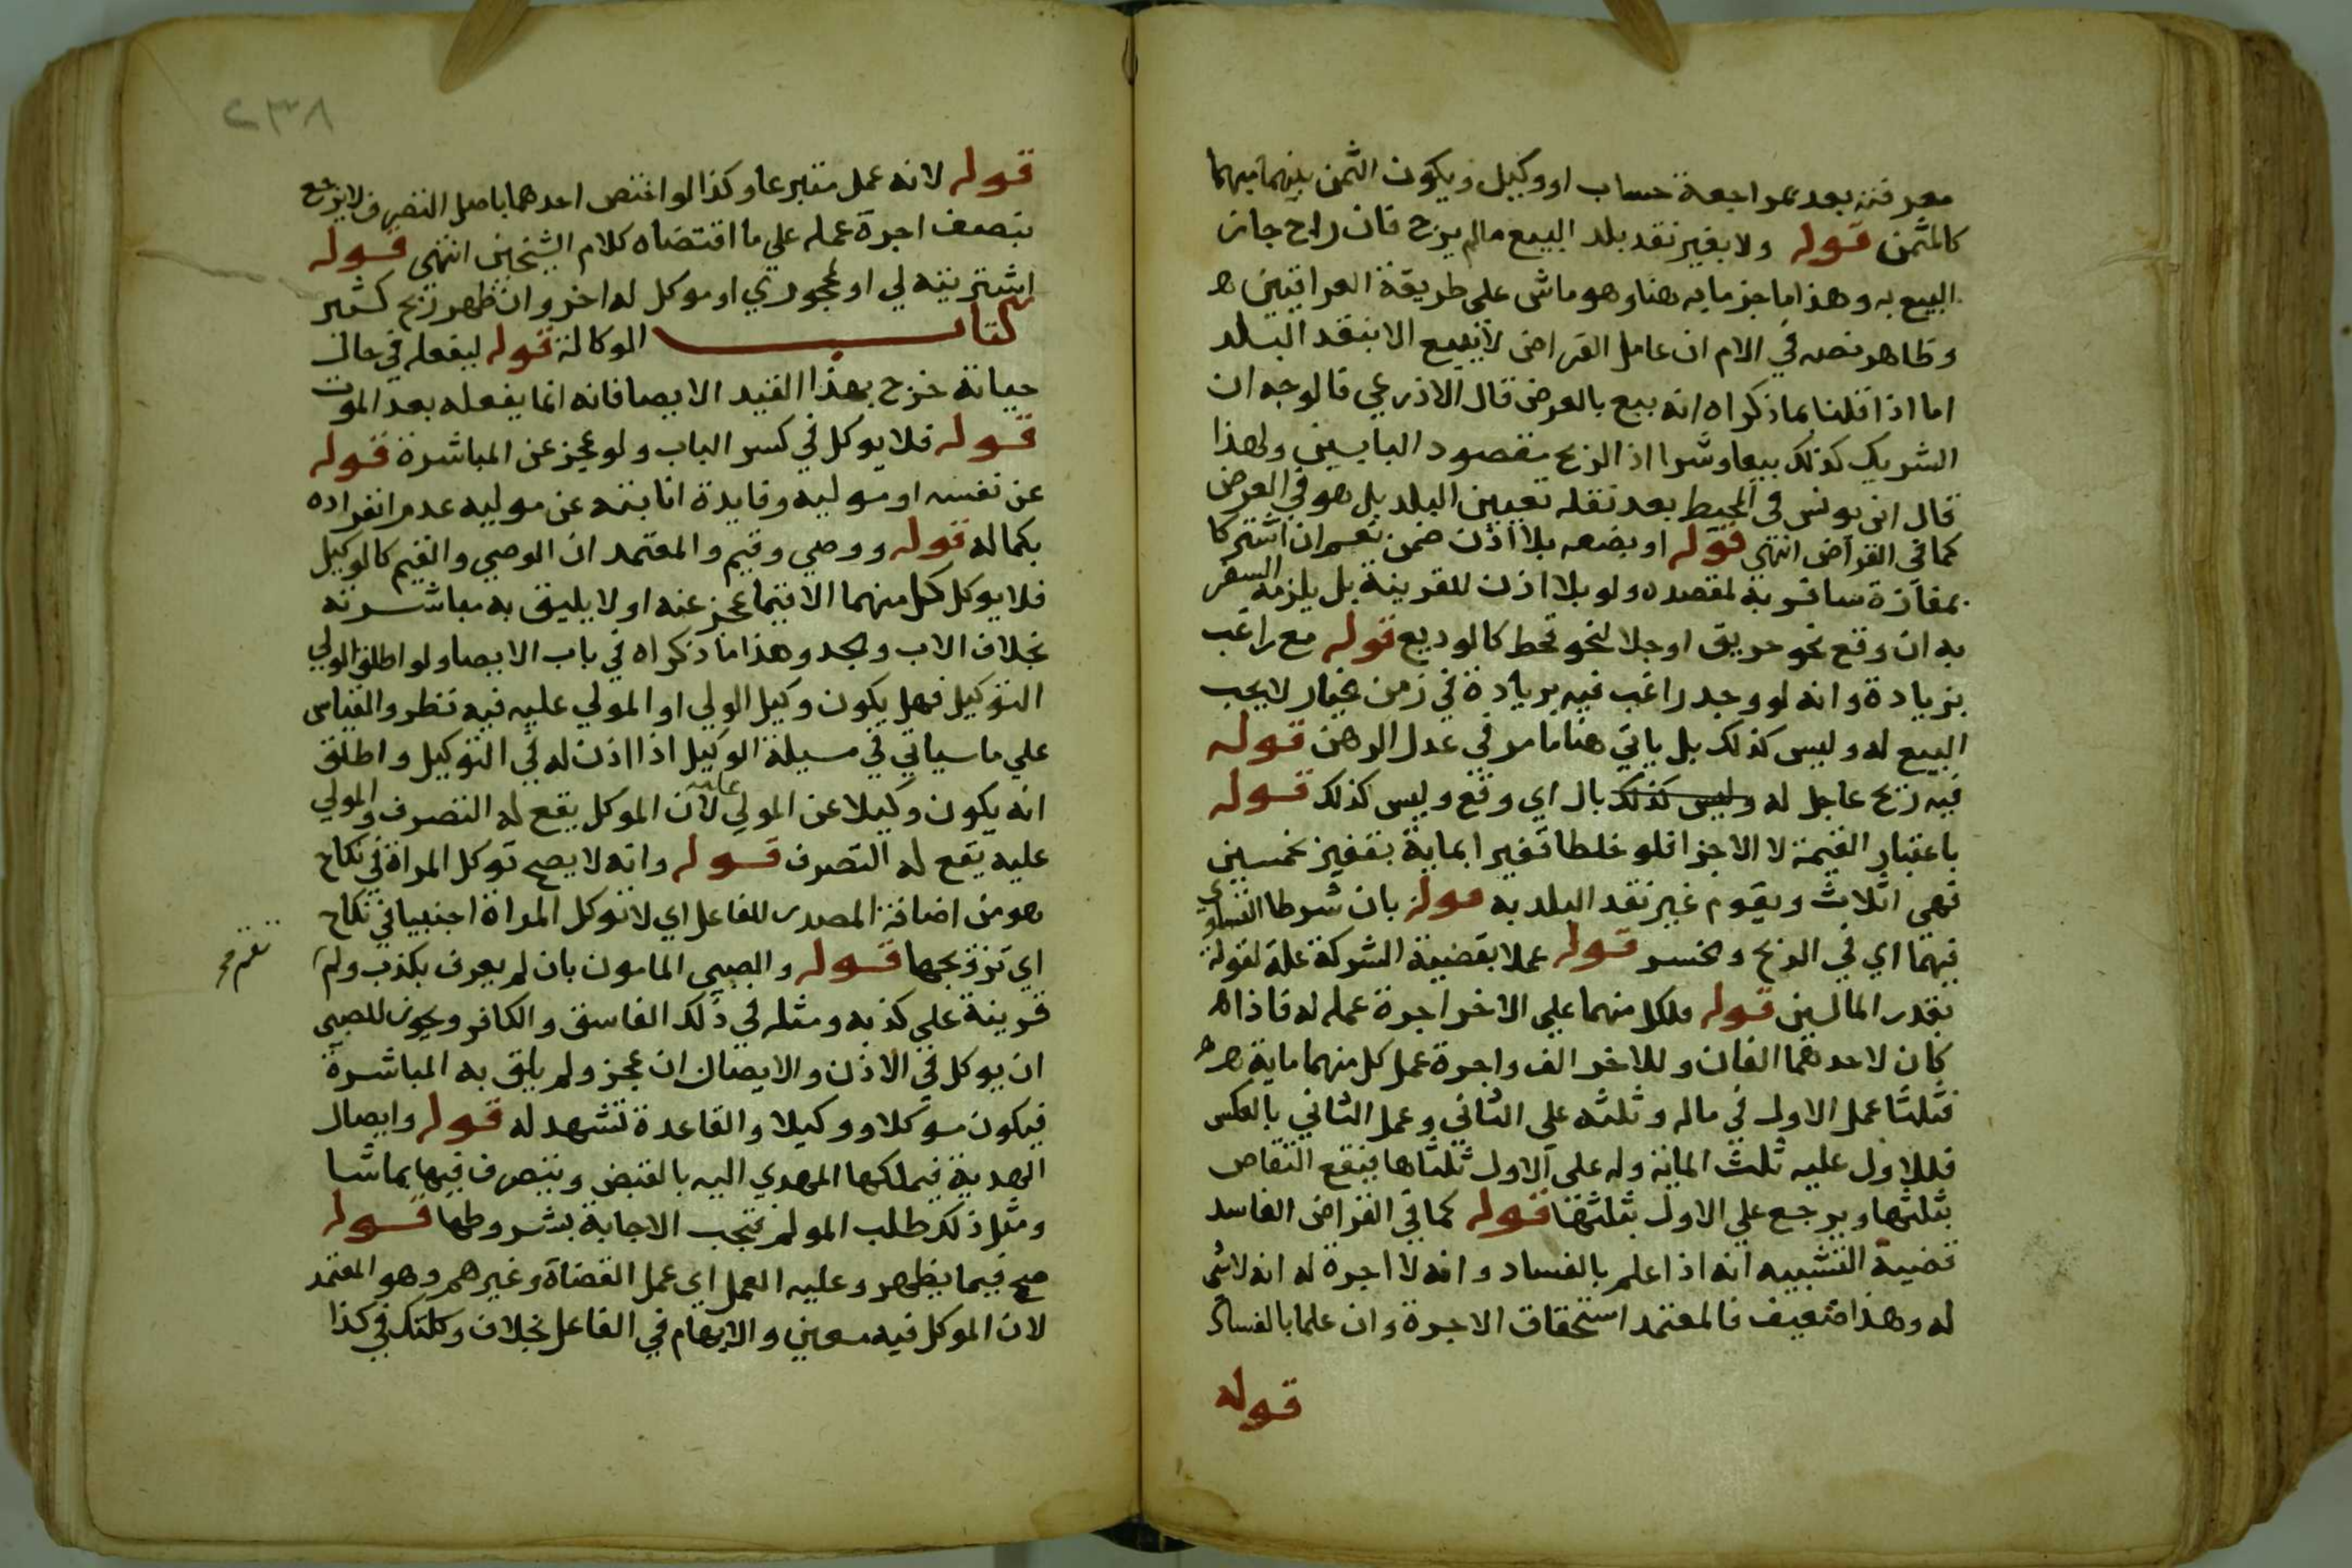 معرفته بعد بمراجعة حساب او وكيل ويكون الثمن بينهما مبهما
كالمثمن قوله ولا بغير نقد بلد البيع مالم يرج فان راج جاز
البيع به وهذا ما جزما به هنا وهو ماش على طريقة العراقيين
وظاهر نصه في الام ان عامل القراض لا يبيع الا بنقد البلد
اما اذا قلنا بما ذكراه انه يبيع بالعرض قال الاذرعي فالوجه ان
الشريك كذلك بيعا وشرا اذ الربح مقصود البابين ولهذا
قال ابن يونس في المحيط بعد نقله تعيين البلد بل هو في العرض
كما في القراض انتهى قوله او بضعه بلا اذن ضمن نعم ان اشتركا
بمفازة سافر به لمقصده ولو بلا اذن للقرينة بل يلزمه السفر
به ان وقع نحو حريق او جلا لنحو قحط كالوديع قوله مع راغب
بزيادة وانه لو وجد راغب فيه بزيادة في زمن خيار لا يجب
البيع له وليس كذلك بل ياتي هنا ما مر في عدل الرهن قوله
فيه ربح عاجل له وليس كذلك بال اي وقع وليس كذلك قوله
باعتبار القيمة لا الاجزا فلو خلطا قفيزا بماية بقفيز بخمسين
فهي اثلاث ويقوم غير نقد البلد به قوله بان شرطا التساوي
فيهما اي في الربح والخسر قوله عملا بقضية الشركة علة لقوله
بقدر المالين قوله فلكل منهما على الاخر اجرة عمله له فاذا
كان لاحدهما الفان وللاخر الف واجرة عمل كل منهما ماية
فثلثا عمل الاول في ماله وثلثه على الثاني وعمل الثاني بالعكس
فللاول عليه ثلث الماية وله على الاول ثلثاها فيقع التقاص
بثلثها ويرجع على الاول بثلثها قوله كما في القراض الفاسد
قضية التشبيه انه اذا علم بالفساد وانه لا اجرة له انه لا شي
له وهذا ضعيف فالمعتمد استحقاق الاجرة وان علما بالفساد
قوله
٢٣٨
قوله لانه عمل متبرعا وكذا لو اختص احدهما باصل التصرف لا يرجع
بنصف اجرة عمله علي ما اقتضاه كلام الشيخين انتهي قوله
اشتريته لي او لمحجوري او موكل له اخر وان ظهر ربح كثير
كتاب الوكالة قوله ليفعله في حال
حياته خرج بهذا القيد الايصا فانه انما يفعله بعد الموت
قوله فلا يوكل في كسر الباب ولو عجز عن المباشرة قوله
عن نفسه او موليه وفايدة انابته عن موليه عدم انفراده
بكماله قوله ووصي وقيم والمعتمد ان الوصي والقيم كالوكيل
فلا يوكل كل منهما الا فيما عجز عنه او لا يليق به مباشرته
بخلاف الاب والجد وهذا ما ذكراه في باب الايصا ولو اطلق الولي
التوكيل فهل يكون وكيل الولي او المولي عليه فيه نظر والقياس
علي ما سياتي في مسيلة الوكيل اذا اذن له في التوكيل واطلق
انه يكون وكيلا عن المولي عليه لان الموكل يقع له التصرف والمولي
عليه يقع له التصرف قوله وانه لا يصح توكل المراة في نكاح
هو من اضافة المصدر للفاعل اي لا توكل المراة اجنبيا في نكاح
اي تزويجها قوله والصبي المامون بان لم يعرف بكذب ولم
تقم
قرينة علي كذبه ومثله في ذلك الفاسق والكافر ويجوز للصبي
ان يوكل في الاذن والايصال ان عجز ولم يلق به المباشرة
فيكون موكلا ووكيلا والقاعدة تشهد له قوله وايصال
الهدية فيملكها المهدي اليه بالقبض ويتصرف فيها بما شا
ومثل ذلك طلب المولم فتجب الاجابة بشروطها قوله
صح فيما يظهر وعليه العمل اي عمل القضاة وغيرهم وهو المعتمد
لان الموكل فيه معين والابهام في الفاعل بخلاف وكلتك في كذا